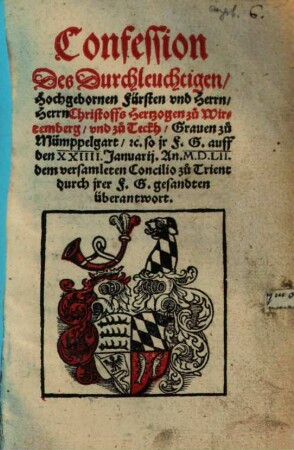 6.
Confession
Des Durchleuchtigen/
Hochgebornen Fürsten vnd Herrn/
Herrn Christoffs Hertzogen zů Wir-
temberg/ vnd zů Teckh/ Grauen zů
Mümppelgart/ ꝛc. so jr F. G. auff
den XXIIII. Januarij. An. M.D.LII.
dem versamleten Concilio zů Trient
durch jrer F. G. gesandten
überantwort.